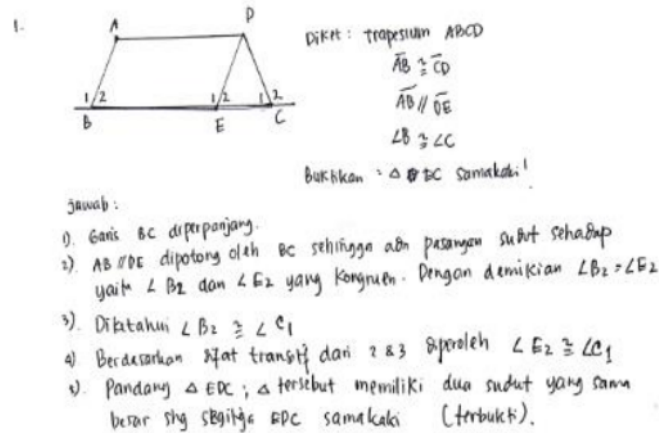 1.
A D
1 2 1 2 1 2
B E C
Diket : trapesium ABCD
AB ≅ CD
AB // DE
∠B ≅ ∠C
Buktikan : △ EC samakaki!
Jawab :
1). Garis BC diperpanjang.
2). AB // DE dipotong oleh BC sehingga adn pasangan sudut sehadap
yaitu ∠B2 dan ∠E2 yang kongruen. Dengan demikian ∠B2 = ∠E2
3). Diketahui ∠B2 ≅ ∠C1
4) Berdasarkan sifat transitif dari 2 & 3 diperoleh ∠E2 ≅ ∠C1
5). Pandang △ EDC ; △ tersebut memiliki dua sudut yang sama
besar shg segitiga EDC samakaki (terbukti).